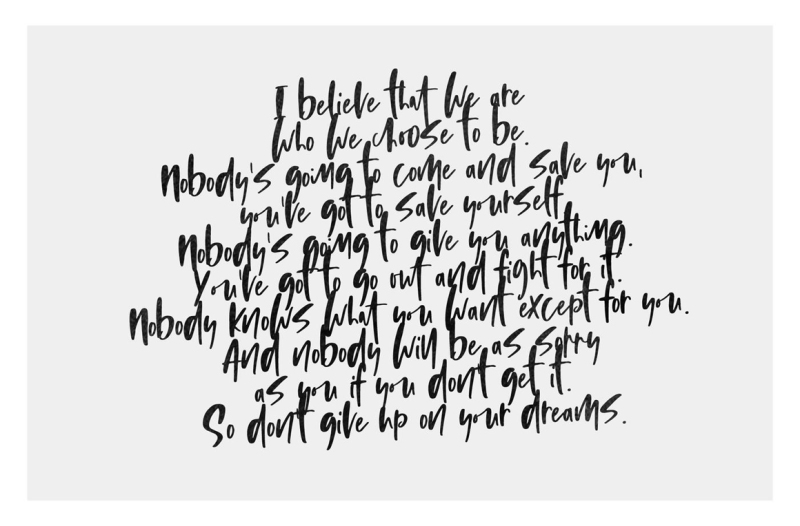 I believe that we are
who we choose to be.
Nobody's going to come and save you,
you've got to save yourself.
Nobody's going to give you anything.
You've got to go out and fight for it.
Nobody knows what you want except for you.
And nobody will be as sorry
as you if you don't get it.
So don't give up on your dreams.